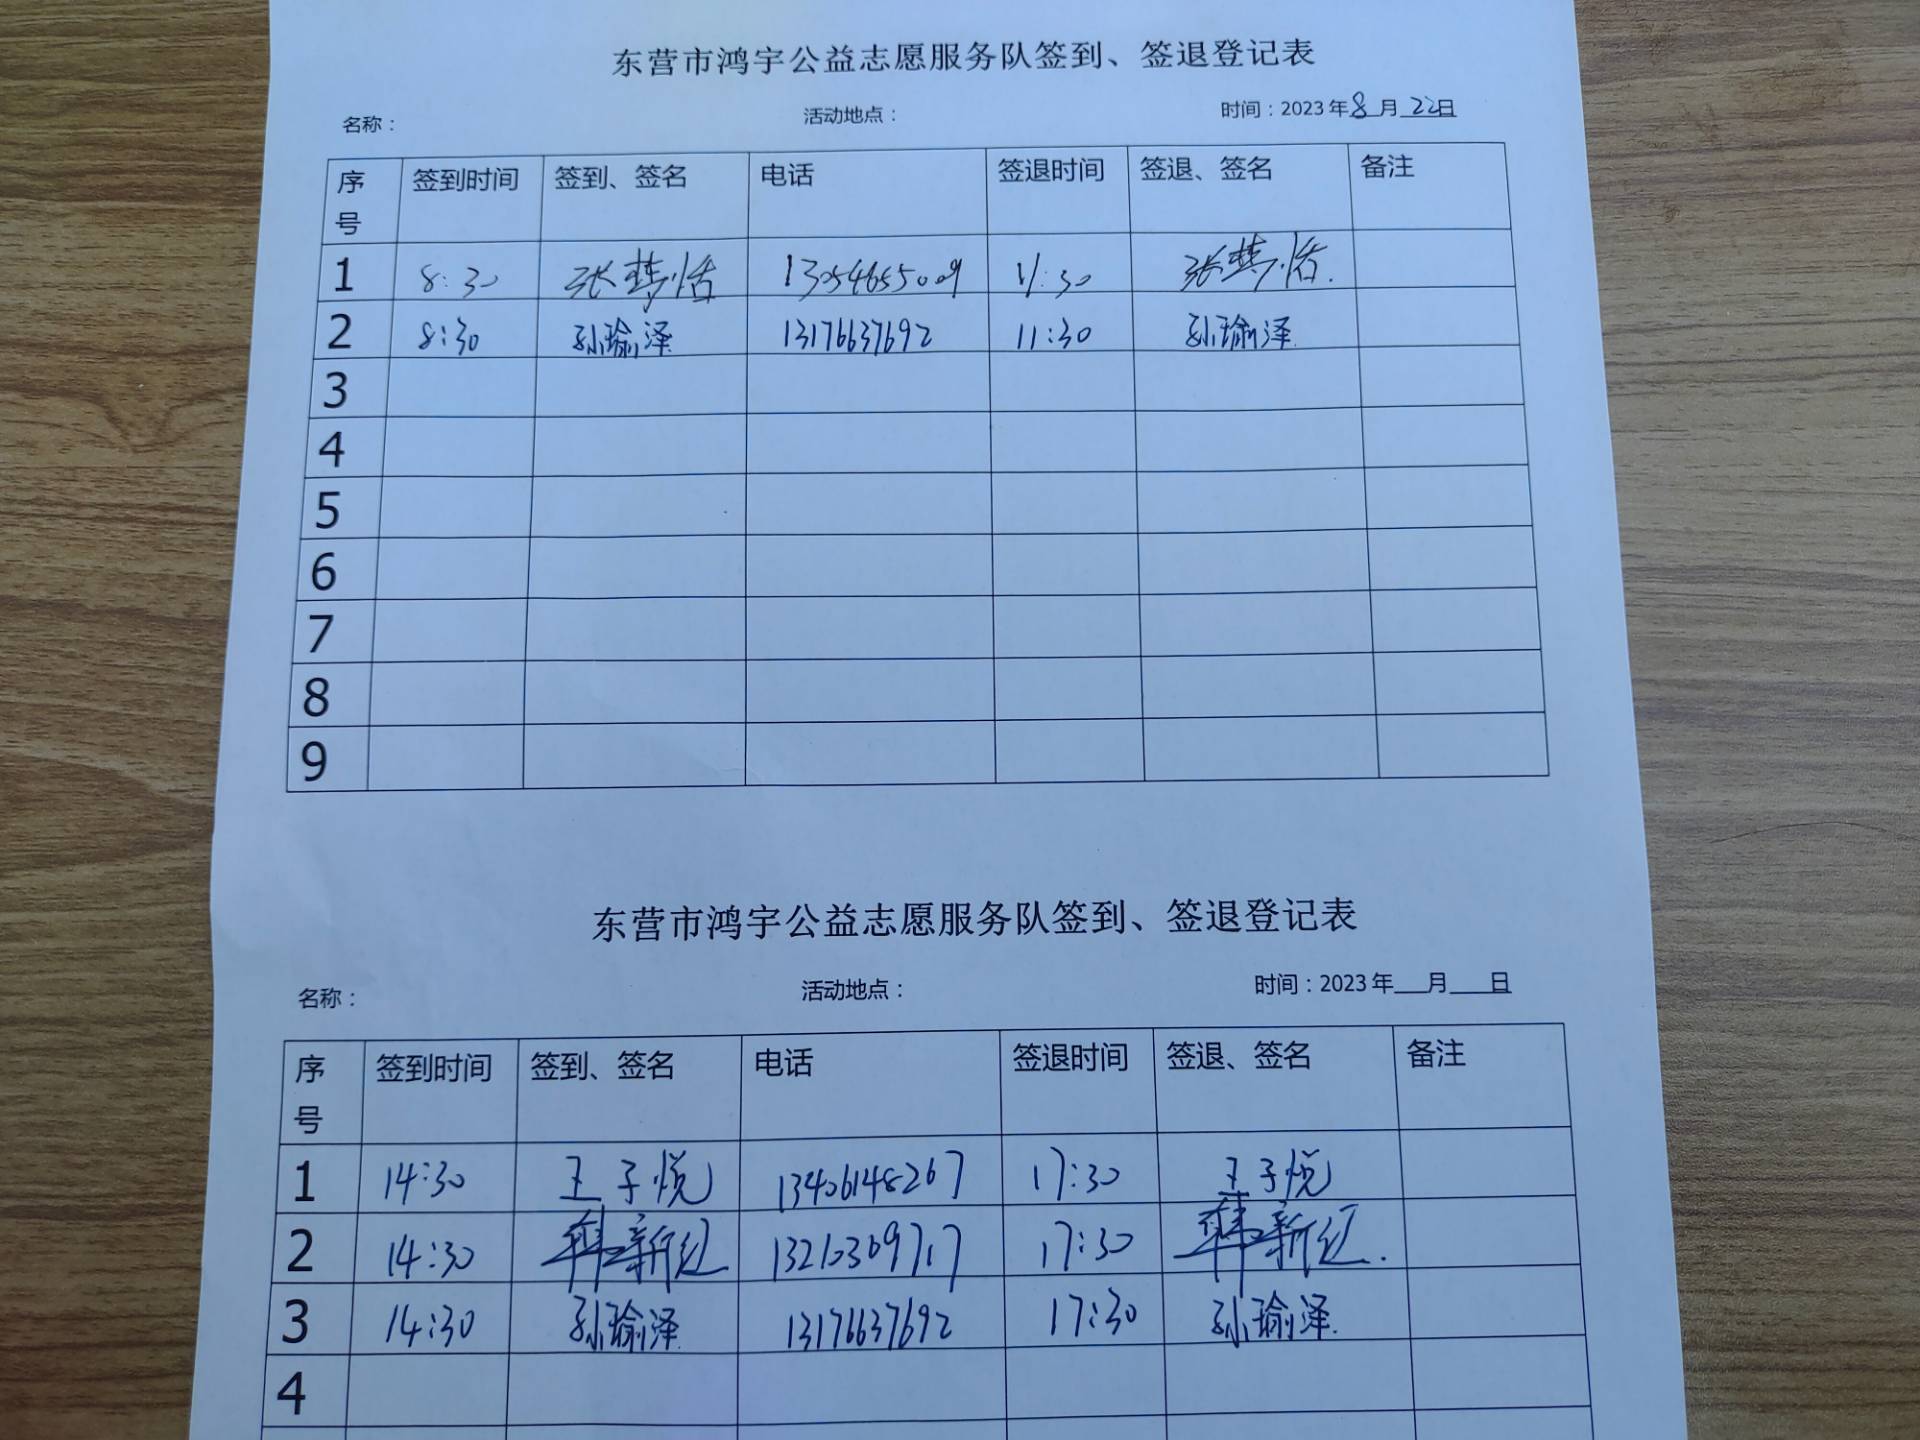 东营市鸿宇公益志愿服务队签到、签退登记表
名称： 活动地点： 时间：2023年8月22日
序号 签到时间 签到、签名 电话 签退时间 签退、签名 备注
1 8:30 张梦恬 13054655009 11:30 张梦恬.
2 8:30 孙瑜泽 13176637692 11:30 孙瑜泽
3
4
5
6
7
8
9
东营市鸿宇公益志愿服务队签到、签退登记表
名称： 活动地点： 时间：2023年 月 日
序号 签到时间 签到、签名 电话 签退时间 签退、签名 备注
1 14:30 王子悦 13406148267 17:30 王子悦
2 14:30 17:30
3 14:30 孙瑜泽 13176637692 17:30 孙瑜泽
4